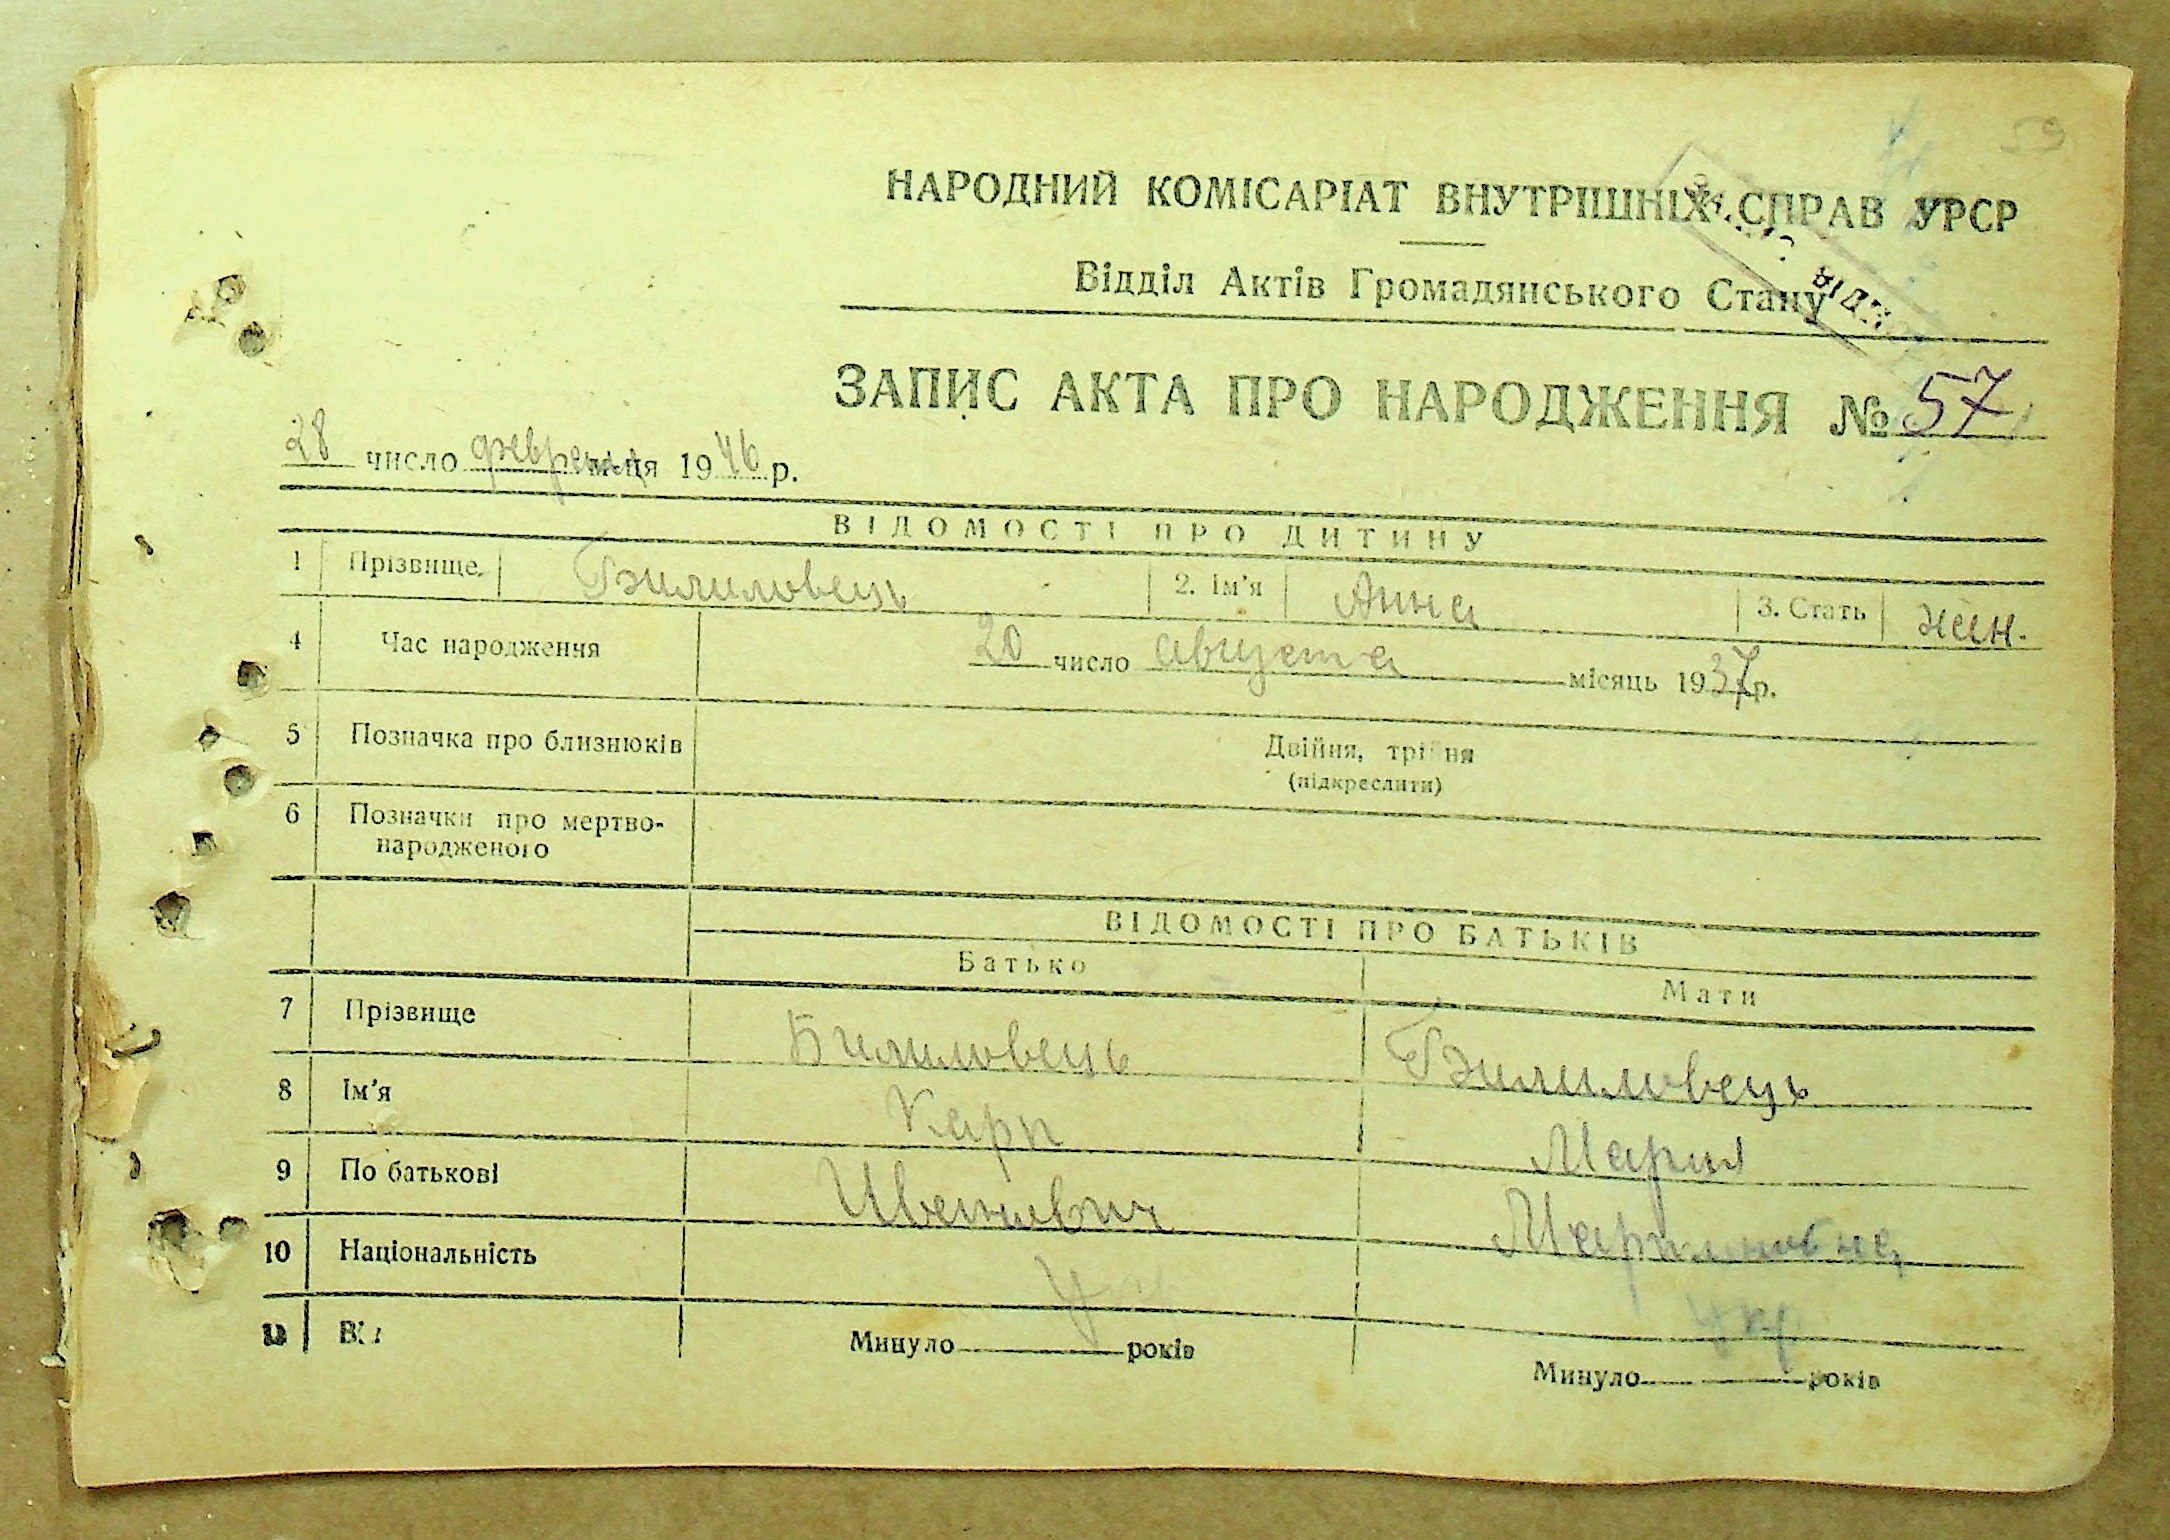 59
НАРОДНИЙ КОМІСАРІАТ ВНУТРІШНІХ СПРАВ УРСР
Відділ Актів Громадянського Стану
ЗАПИС АКТА ПРО НАРОДЖЕННЯ № 57
28 число февраля м-ця 1946 р.
ВІДОМОСТІ ПРО ДИТИНУ
1 Прізвище Билиловець 2. Ім'я Анна 3. Стать жен.
4 Час народження 20 число августа місяць 1937 р.
5 Позначка про близнюків Двійня, трійня
(підкреслити)
6 Позначки про мертво-
народженого
ВІДОМОСТІ ПРО БАТЬКІВ
Батько Мати
7 Прізвище Билиловець Билиловець
8 Ім'я Карп Мария
9 По батькові Иванович
10 Національність Укр Укр
11 Вік Минуло років Минуло років